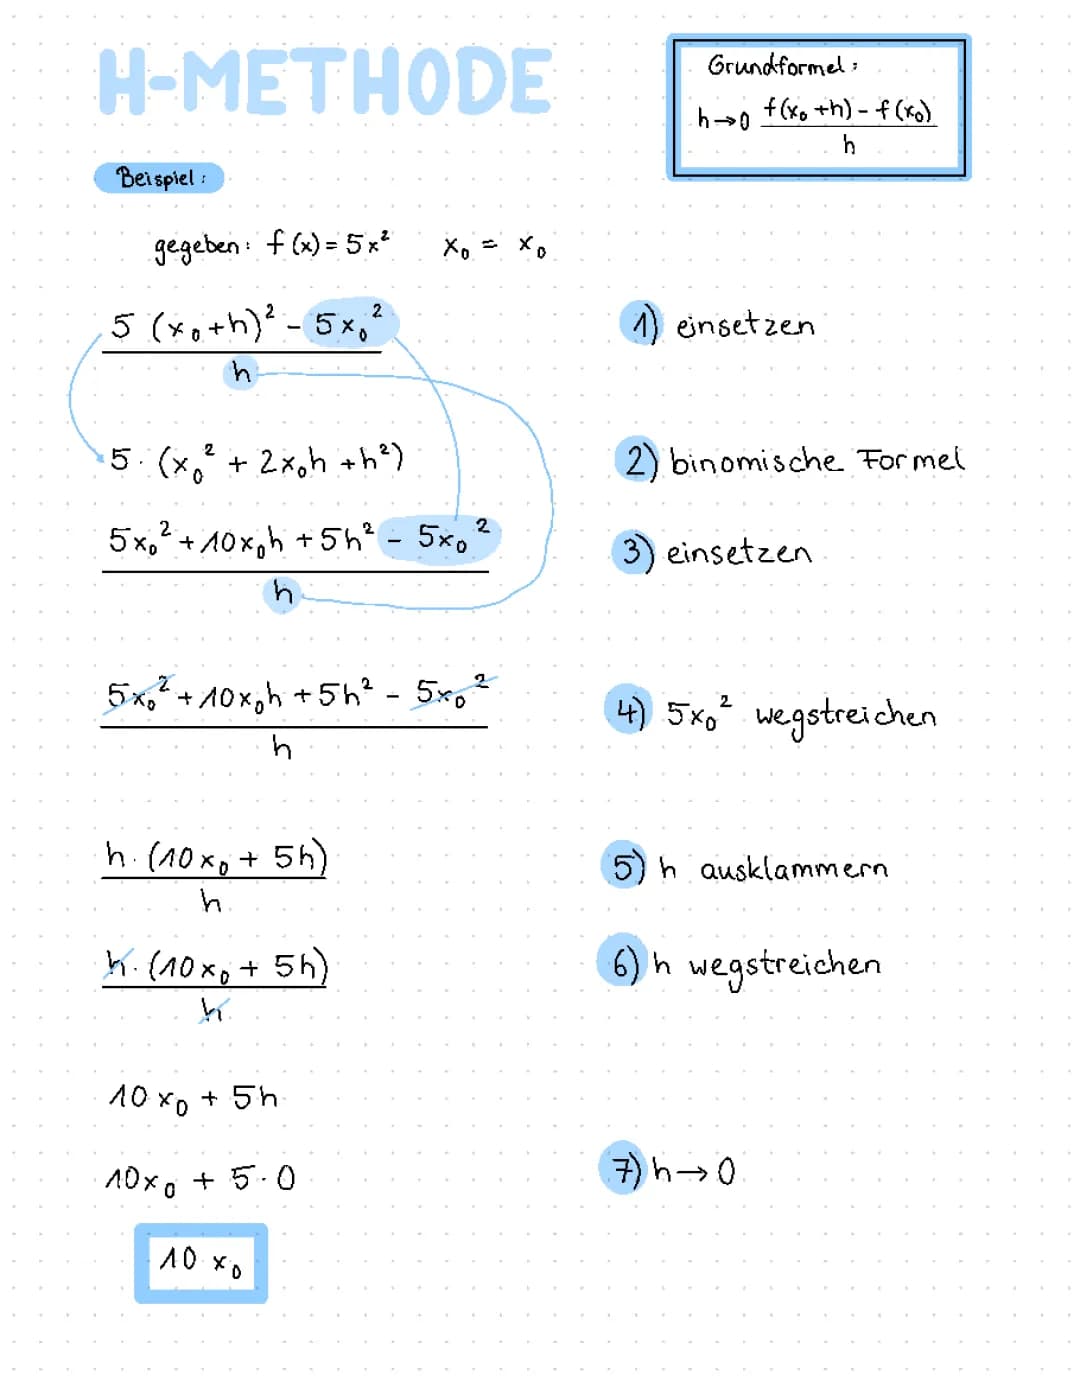 H-METHODE
Grundformel:
h→0 f(x₀+h)-f(x₀)
h
Beispiel:
gegeben: f(x)=5x² x₀ = x₀
5 (x₀+h)² - 5x₀²
h
1) einsetzen
5·(x₀² + 2x₀h +h²)
2) binomische Formel
5x₀² + 10x₀h + 5h² - 5x₀²
h
3) einsetzen
5x₀² + 10x₀h + 5h² - 5x₀²
h
4) 5x₀² wegstreichen
h·(10x₀ + 5h)
h
5) h ausklammern
h·(10x₀ + 5h)
h
6) h wegstreichen
10x₀ + 5h
10x₀ + 5·0
7) h→0
10 x₀